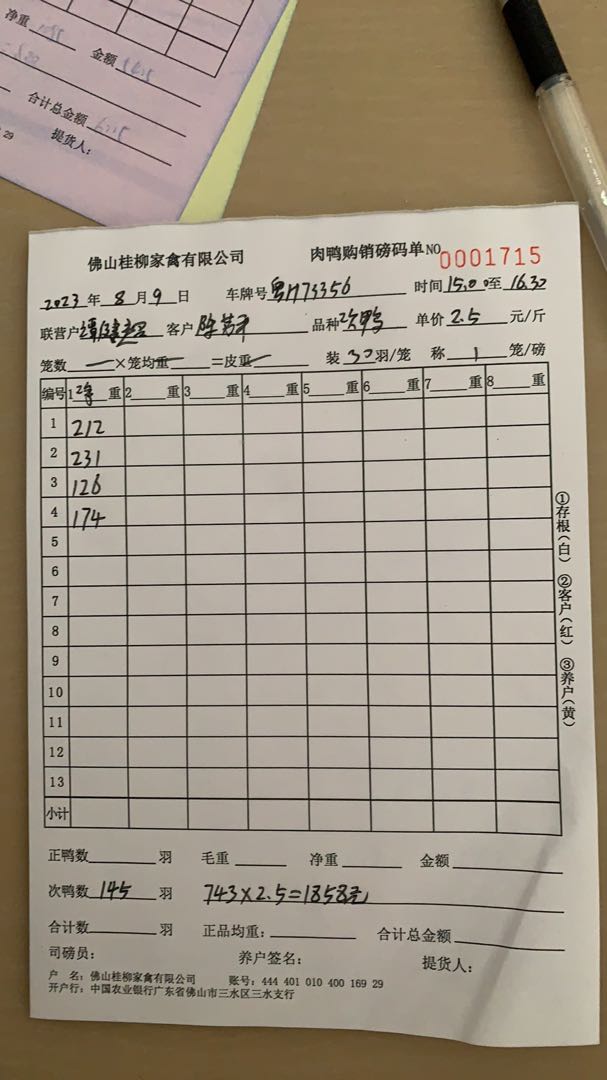 净重
金额
合计总金额
29 提货人:
佛山桂柳家禽有限公司 肉鸭购销磅码单NO 0001715
2023 年 8 月 9 日 车牌号 时间 15.00 至 16.30
联营户 客户 品种 次鸭 单价 2.5 元/斤
笼数 ×笼均重 =皮重 装 30 羽/笼 称 1 笼/磅
编号 1 净 重 2 重 3 重 4 重 5 重 6 重 7 重 8 重
1 212
2 231
3 126
4 174
5
6
7
8
9
10
11
12
13
小计
①存根(白) ②客户(红) ③养户(黄)
正鸭数 羽 毛重 净重 金额
次鸭数 145 羽 743×2.5=1858元
合计数 羽 正品均重: 合计总金额
司磅员: 养户签名: 提货人:
户 名: 佛山桂柳家禽有限公司 账号: 444 401 010 400 169 29
开户行: 中国农业银行广东省佛山市三水区三水支行